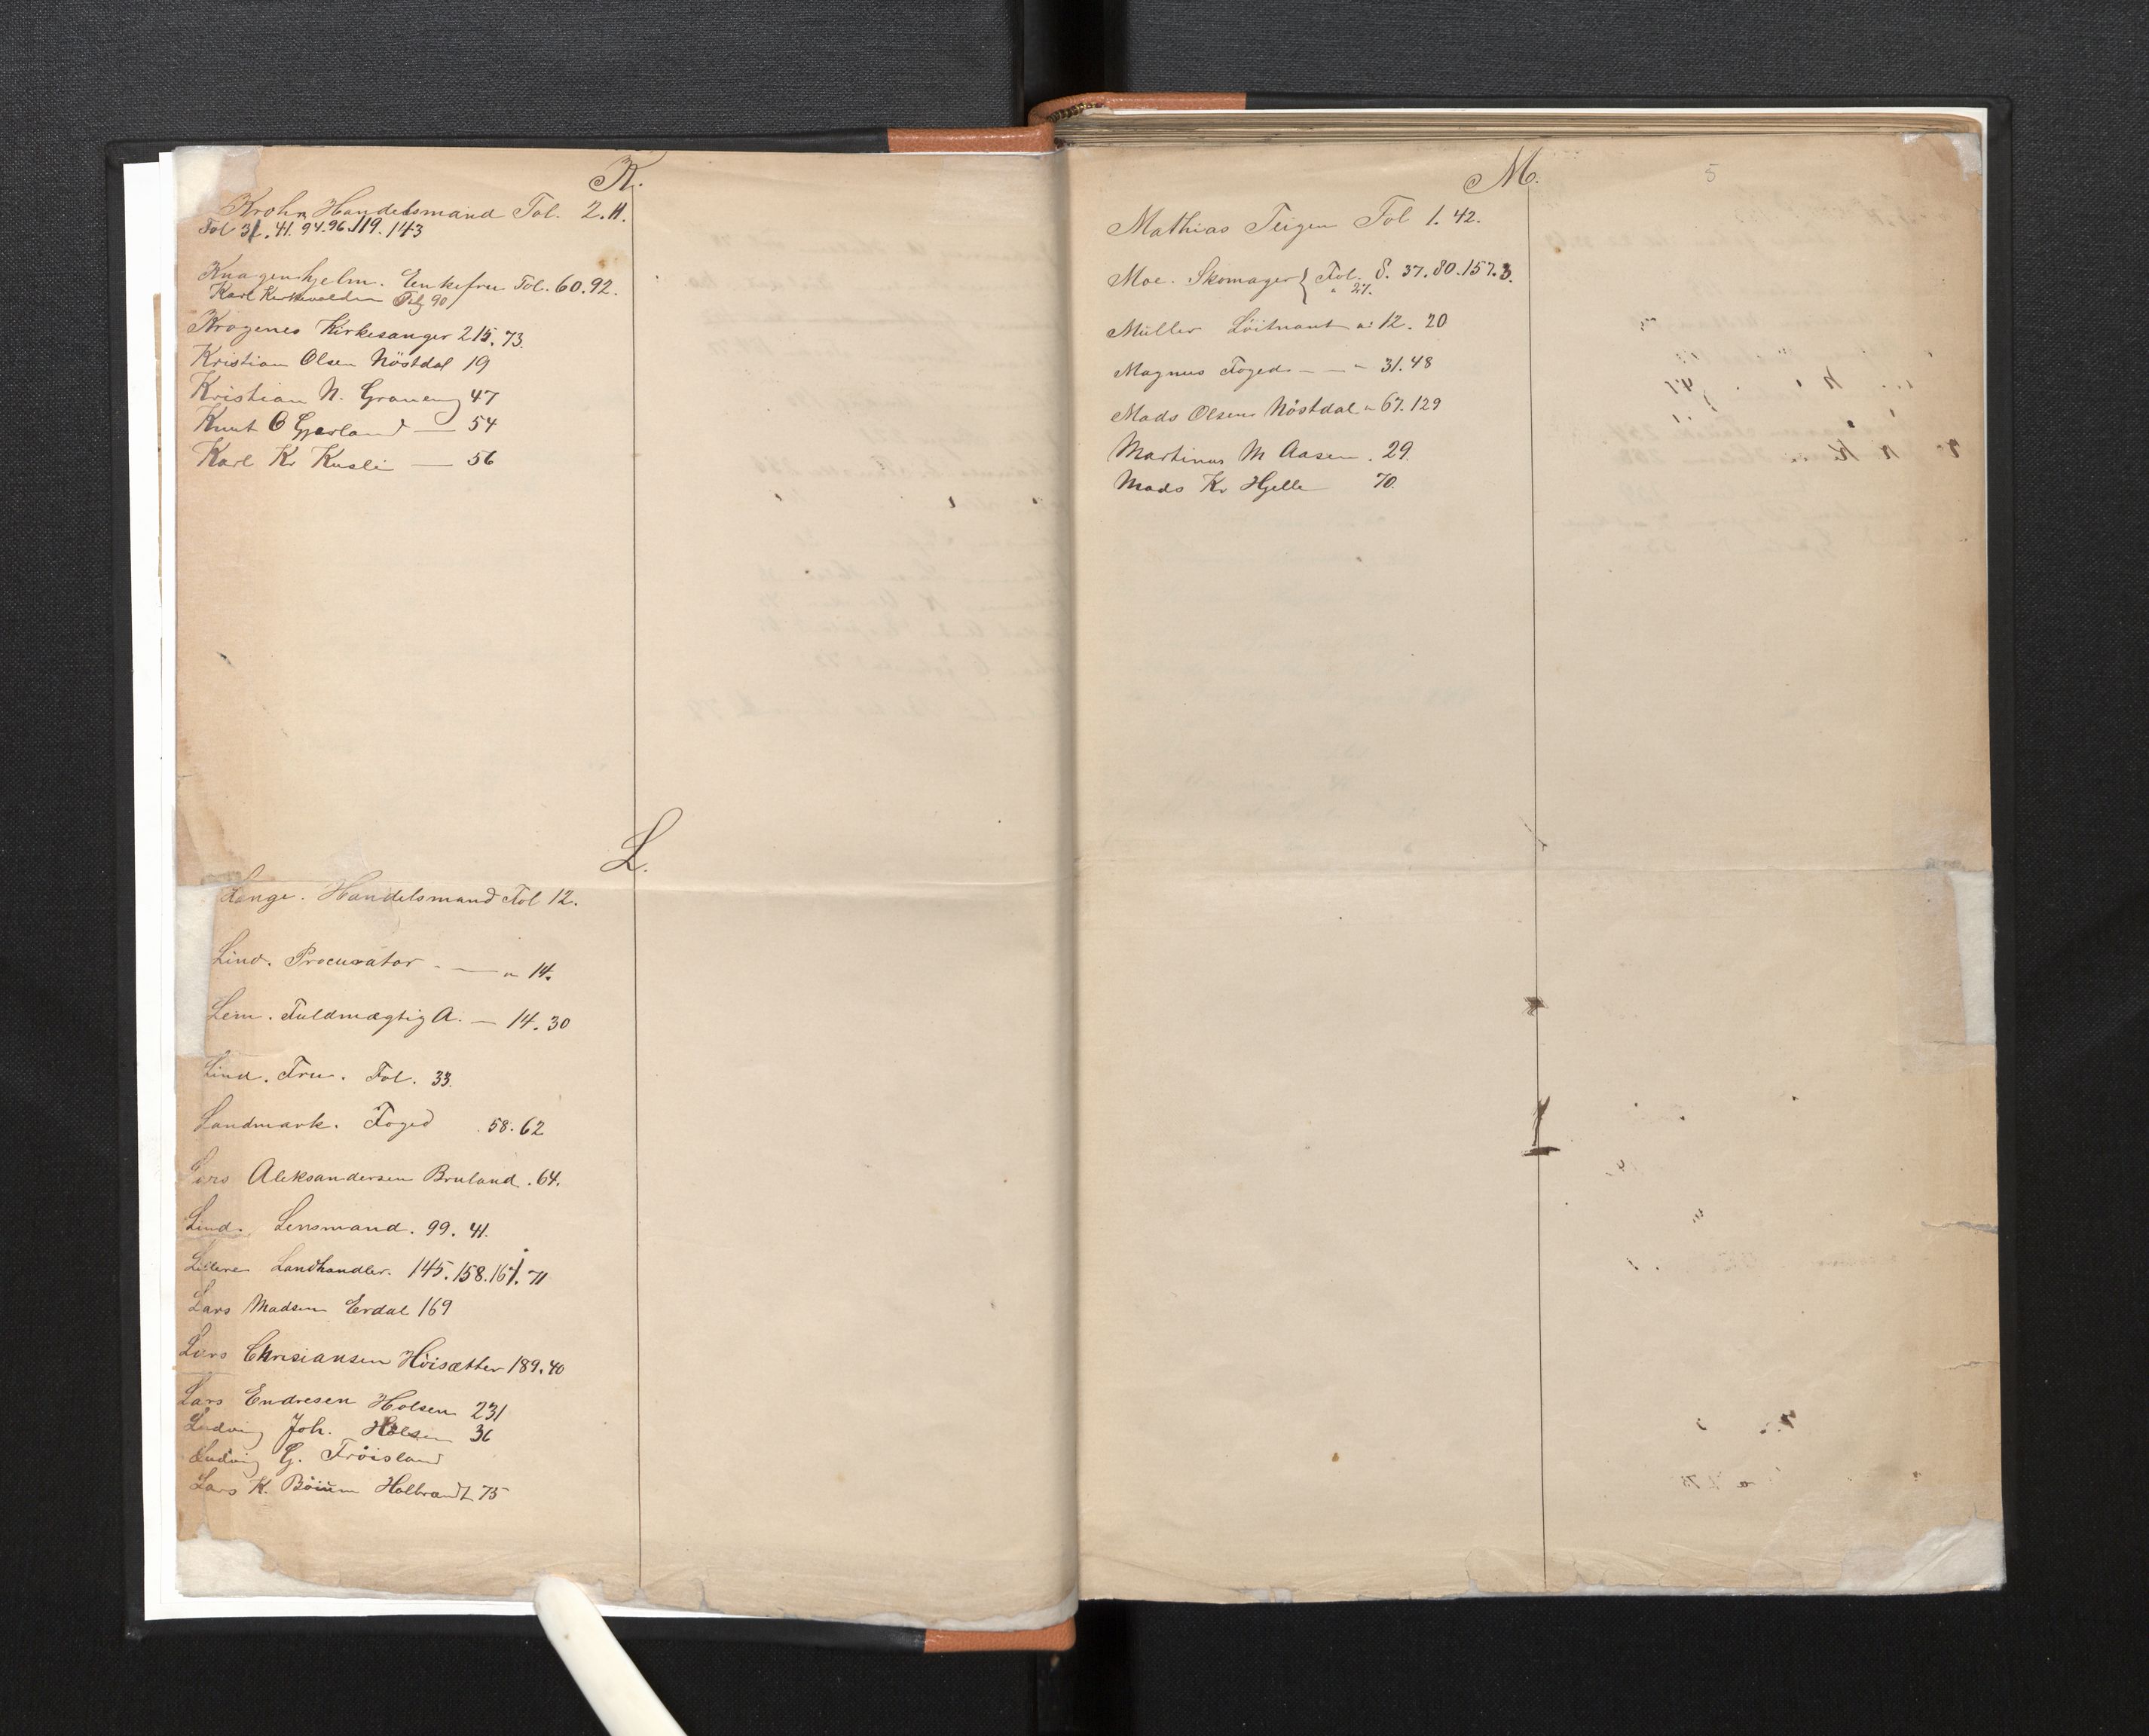 K.
Krohn Handelsmand Fol. 2.11.
Fol 31. 41. 94. 96. 119. 143
Knagenhjelm. Enkefru Fol. 60. 92.
Karl 90
Krogenes Kirkesanger 215. 73.
Kristian Olsen Nöstdal 19
Kristian N. 47
Knut O Gjerland — 54
Karl Kr Kusli — 56
L.
Lange. Handelsmand Fol 12.
Lind. Procurator — " 14.
Lem. Fuldmægtig A. — 14. 30
Lind. Fru. Fol. 33.
Landmark. Foged 58. 62
Lars Aleksandersen Bruland. 64.
Lind. Lensmand. 99. 41.
Landhandler. 145. 158. 71
Lars Madsen Erdal 169
Lars Chrisiansen Höisætter 189. 40
Lars Endresen Holsen 231
Ludvig Joh. Holsen 36
Ludvig G. Fröisland
Lars K. Böium 75
M. 5
Mathias Teigen Fol 1. 42.
Moe. Skomager } Fol. 8. 37. 80. 157. 3.
" 27.
Müller Löitnant " 12. 20
Magnus Foged — — " 31. 48
Mads Olsen Nöstdal " 67. 129
Martinus M Aasen. 29.
Mads Kr Hjelle 70.